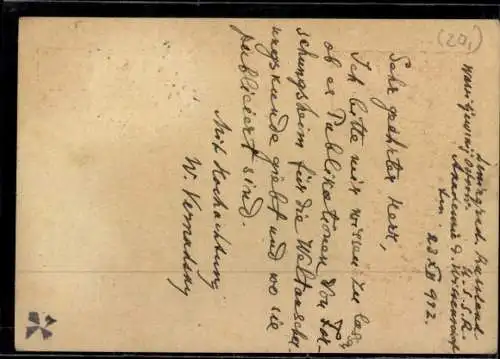 (20,)
Leningrad. Russland
U.S.S.R.
Academie d. Wissensch.
den 23 XII 992.
Sehr geehrter Herr,
Ich bitte mir wissen zu lassen
ob es Publikationen der For-
schungsheim für die Weltanschau-
ungskunde giebt und wo sie
publiciert sind.
Mit Hochachtung
W. Vernadsky